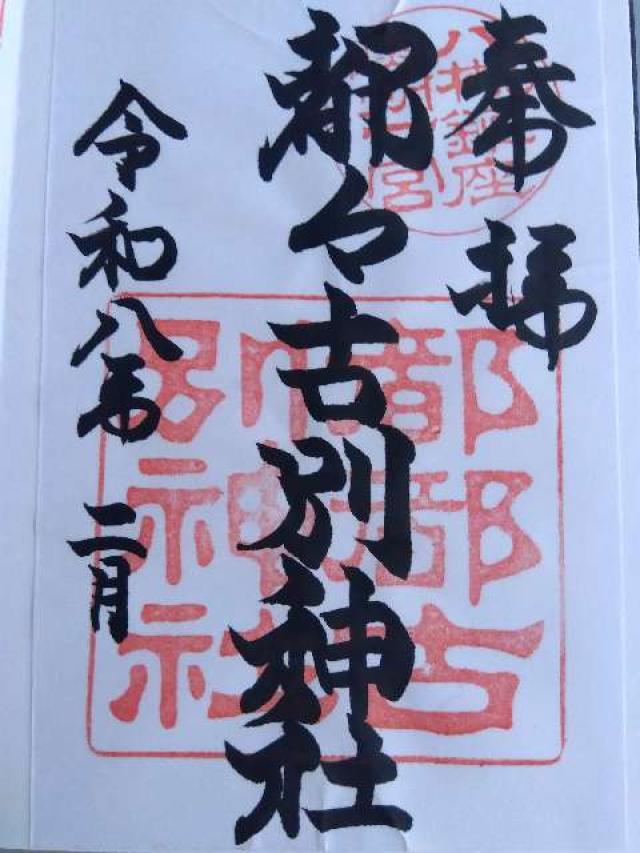 奉拝
八槻鎮座
都々古別神社
都都古
別神社
令和八年 二月